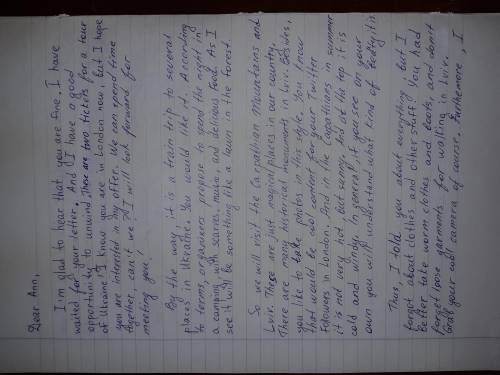 Dear Ann,
I'm glad to hear that you are fine. I have
waited for your letter. And I have a good
opportunity to unwind. These are two tickets for a tour
of Ukraine. I know you are in London now, but I hope
you are interested in my offer. We can spend time
together, can't we? I will look forward for
meeting you!
By the way, it is a train trip to several
places in Ukraine. You would like it. According
to terms, organuzers propose to spend the night in
a camping with scares, music, and delicious food. As I
see it will be something like a lawn in the forest.
So we will visit the Carpathian Mountains and
Lviv. These are just magical places in our country.
There are many historical monuments in Lviv. Besides,
you like to take photos in this style. You know
that would be cool content for your Twitter
followers in London. And in the Carpathians in summer
it is not very hot, but sunny. And at the top it is
cold and windy. In general, if you see on your
own you will understand what kind of beaty it is
Thus, I told you about everything, but I
forgot about clothes and other stuff! You had
better take worm clothes and boots, and do not
forget loose garments for walking in Lviv.
Grab your cool camera of course. Furthemore, I